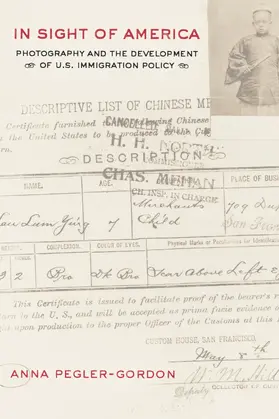 IN SIGHT OF AMERICA
PHOTOGRAPHY AND THE DEVELOPMENT
OF U.S. IMMIGRATION POLICY
DESCRIPTIVE LIST OF CHINESE
Certificate furnished to the following Chinese
the United States to be produced to the
CANCELLED
H. H. NORTH
DESCRIPTION
CHAS. MEHAN
CH. INSP. IN CHARGE
NAME.
AGE.
PLACE OF BUS
Merchants
709 Du
Lum Ying
7
Child
San Fran
COMPLEXION.
COLOR OF EYES.
Physical Marks or Peculiarities for Identification
2
Bro
Dk Bro
Scar Above Left E
This Certificate is issued to facilitate proof of the bearer's
to the U. S., and will be accepted as prima facie evidence
upon production to the proper Officer of the Customs at this
CUSTOM HOUSE, SAN FRANCISCO,
May 8th
ANNA PEGLER-GORDON
Deputy
COLLECTOR OF